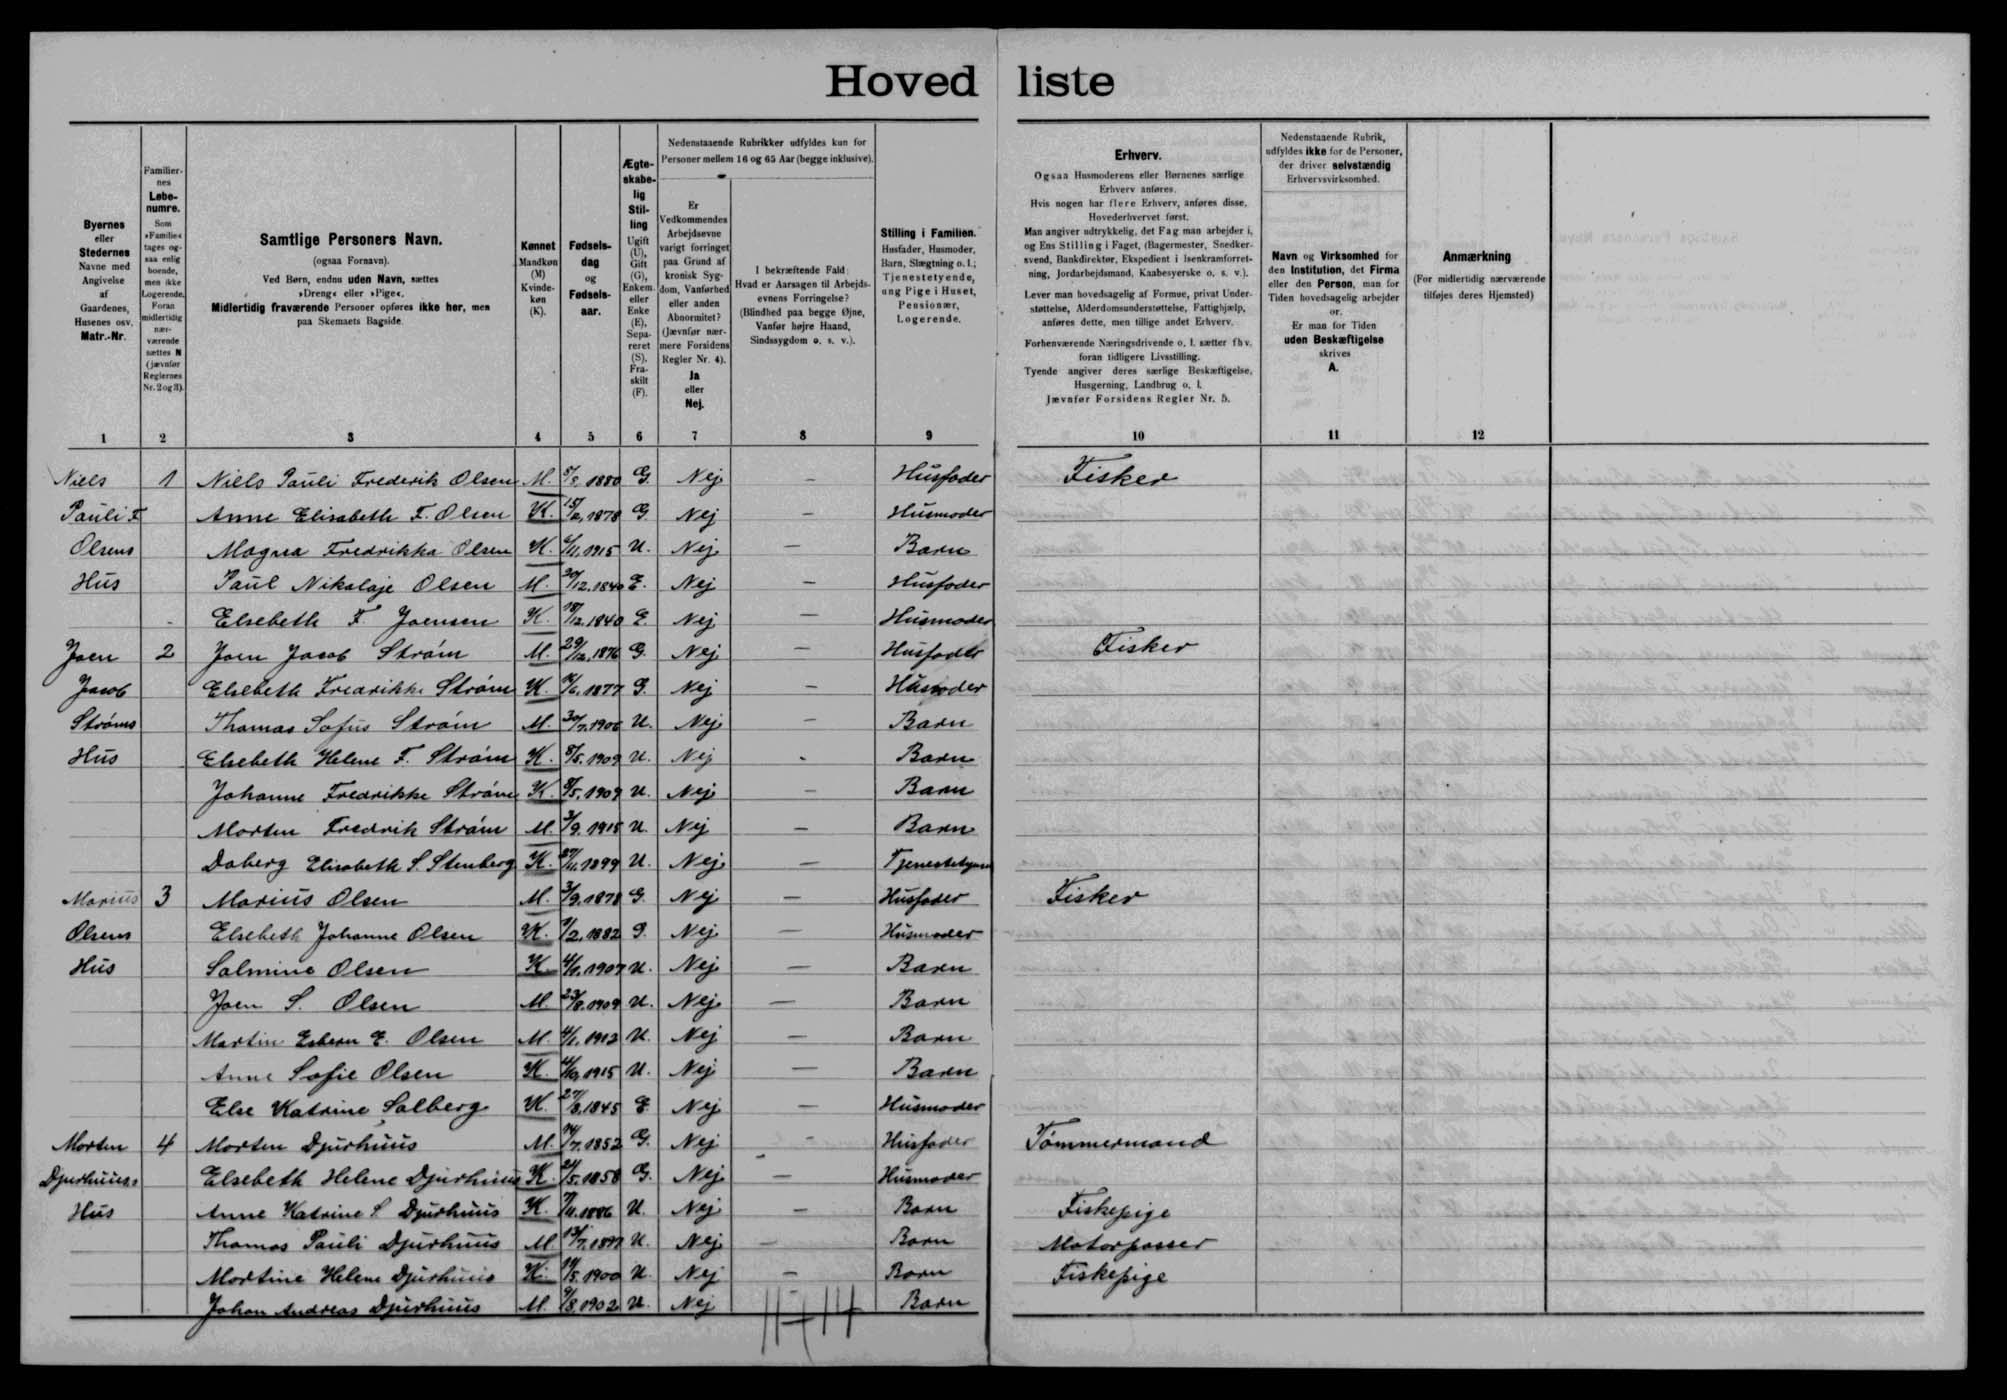 Hoved liste
Byernes
eller
Stedernes
Navne med
Angivelse
af
Gaardenes,
Husenes osv.
Matr.-Nr.
Familier-
nes
Løbe-
numre.
Som
»Familie«
tages og-
saa enlig
boende,
men ikke
Logerende.
Foran
midlertidig
nær-
værende
sættes N
(jævnfør
Reglernes
Nr. 2 og 3).
Samtlige Personers Navn.
(ogsaa Fornavn).
Ved Børn, endnu uden Navn, sættes
»Dreng« eller »Pige«.
Midlertidig fraværende Personer opføres ikke her, men
paa Skemaets Bagside.
Kønnet
Mandkøn
(M)
Kvinde-
køn
(K).
Fødsels-
dag
og
Fødsels-
aar.
Ægte-
skabe-
lig
Stil-
ling
Ugift
(U),
Gift
(G),
Enkem.
eller
Enke
(E),
Sepa-
reret
(S).
Fra-
skilt
(F).
Nedenstaaende Rubrikker udfyldes kun for
Personer mellem 16 og 65 Aar (begge inklusive).
Er
Vedkommendes
Arbejdsevne
varigt forringet
paa Grund af
kronisk Syg-
dom, Vanførhed
eller anden
Abnormitet?
(Jævnfør nær-
mere Forsidens
Regler Nr. 4).
Ja
eller
Nej.
I bekræftende Fald:
Hvad er Aarsagen til Arbejds-
evnens Forringelse?
(Blindhed paa begge Øjne,
Vanfør højre Haand,
Sindssygdom o. s. v.).
Stilling i Familien.
Husfader, Husmoder,
Barn, Slægtning o. l.;
Tjenestetyende,
ung Pige i Huset,
Pensionær,
Logerende.
Erhverv.
Ogsaa Husmoderens eller Børnenes særlige
Erhverv anføres.
Hvis nogen har flere Erhverv, anføres disse,
Hovederhvervet først.
Man angiver udtrykkelig, det Fag man arbejder i,
og Ens Stilling i Faget, (Bagermester, Snedker-
svend, Bankdirektør, Ekspedient i Isenkramforret-
ning, Jordarbejdsmand, Kaabesyerske o. s. v.).
Lever man hovedsagelig af Formue, privat Under-
støttelse, Alderdomsunderstøttelse, Fattighjælp,
anføres dette, men tillige andet Erhverv.
Forhenværende Næringsdrivende o. l. sætter fhv.
foran tidligere Livsstilling.
Tyende angiver deres særlige Beskæftigelse,
Husgerning, Landbrug o. l.
Jævnfør Forsidens Regler Nr. 5.
Nedenstaaende Rubrik,
udfyldes ikke for de Personer,
der driver selvstændig
Erhvervsvirksomhed.
Navn og Virksomhed for
den Institution, det Firma
eller den Person, man for
Tiden hovedsagelig arbejder
or.
Er man for Tiden
uden Beskæftigelse
skrives
A.
Anmærkning
(For midlertidig nærværende
tilføjes deres Hjemsted)
1 2 3 4 5 6 7 8 9 10 11 12
Niels 1 Niels Pauli Frederik Olsen M. 1880 G. Nej — Husfader Fisker
Pauli F Anne Elisabeth F. Olsen K. 15/2. 1878 G. Nej — Husmoder
Olsens Magna Fredrikka Olsen K. 1915 U. Nej — Barn
Hus Paul Nikolaje Olsen M. 30/12. 1840 E. Nej — Husfader
Elsebeth F. Joensen K. 18/12. 1840 E. Nej — Husmoder
Joen 2 Joen Jacob Strøm M. 29/12. 1876 G. Nej — Husfader Fisker
Jacob Elsebeth Fredrikke Strøm K. 1877 G. Nej — Husmoder
Strøms Thomas Sofus Strøm M. 30/7. 1906 U. Nej — Barn
Hus Elsebeth Helene F. Strøm K. 8/5. 1909 U. Nej - Barn
Johanne Fredrikke Strøm K. 8/5. 1909 U. Nej — Barn
Morten Fredrik Strøm M. 3/9. 1915 U. Nej — Barn
Daberg Elisabeth S. Stenberg K. 1899 U. Nej — Tjenestetyende
Marius 3 Marius Olsen M. 3/9. 1878 G. Nej — Husfader Fisker
Olsens Elsebeth Johanne Olsen K. 1882 G. Nej — Husmoder
Hus Salmine Olsen K. 4/1. 1907 U. Nej — Barn
Joen S. Olsen M. 23/8. 1909 U. Nej — Barn
Martin Esbern E. Olsen M. 4/1. 1912 U. Nej — Barn
Anne Sofie Olsen K. 1915 U. Nej — Barn
Else Katrine Solberg K. 27/8. 1845 E. Nej — Husmoder
Morten 4 Morten Djurhuus M. 14/7. 1852 G. Nej - Husfader Tømmermand
Djurhuuss Elsebeth Helene Djurhuus K. 21/5. 1858 G. Nej — Husmoder
Hus Anne Katrine S Djurhuus K. 1886 U. Nej — Barn Fiskepige
Thomas Pauli Djurhuus M. 13/7. U. Nej — Barn Motorpasser
Mortine Helene Djurhuus K. 1900 U. Nej — Barn Fiskepige
Johan Andreas Djurhuus M. 9/8. 1902 U. Nej - Barn